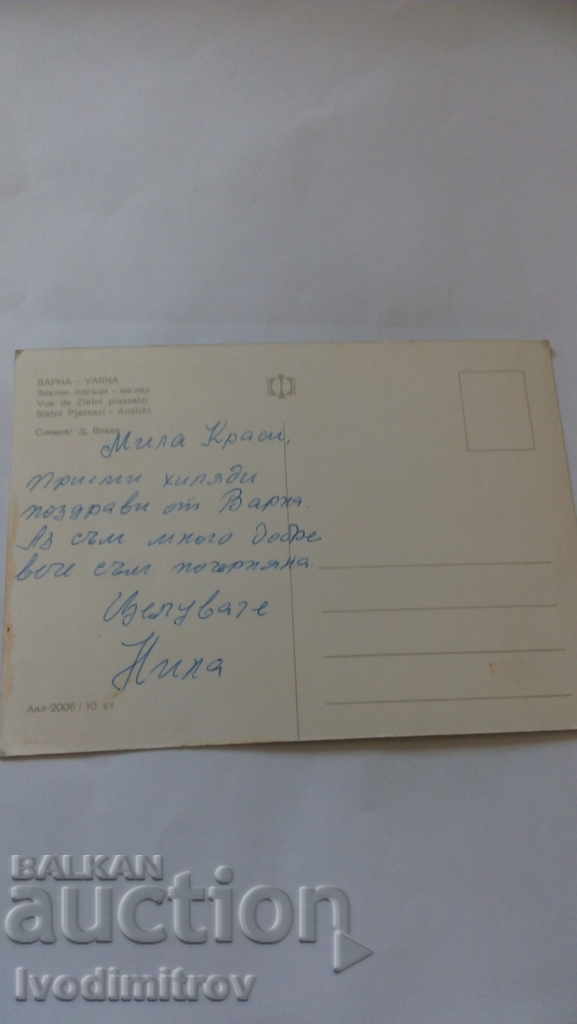 ВАРНА - VARNA
Златни пясъци - изглед
Vue de Zlatni piassatzi
Slatni Pjassazi - Ansicht
Снимка: Д.
Мила Краси,
Приеми хиляди
поздрави от Варна.
Аз съм много добре
вече съм почерняла.
Целувате
Нина
Акл-2006 / 10 ст.
BALKAN
auction
Ivodimitrov